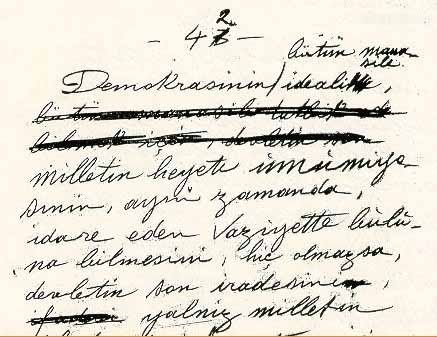 - 42 -
bütün mana
sile
Demokrasinin / ideali,
milletin heyeti ümümiye
sinin, ayni zamanda,
idare eden vaziyette bulu-
na bilmesini, hiç olmazsa,
devletin son iradesini,
yalnız milletin